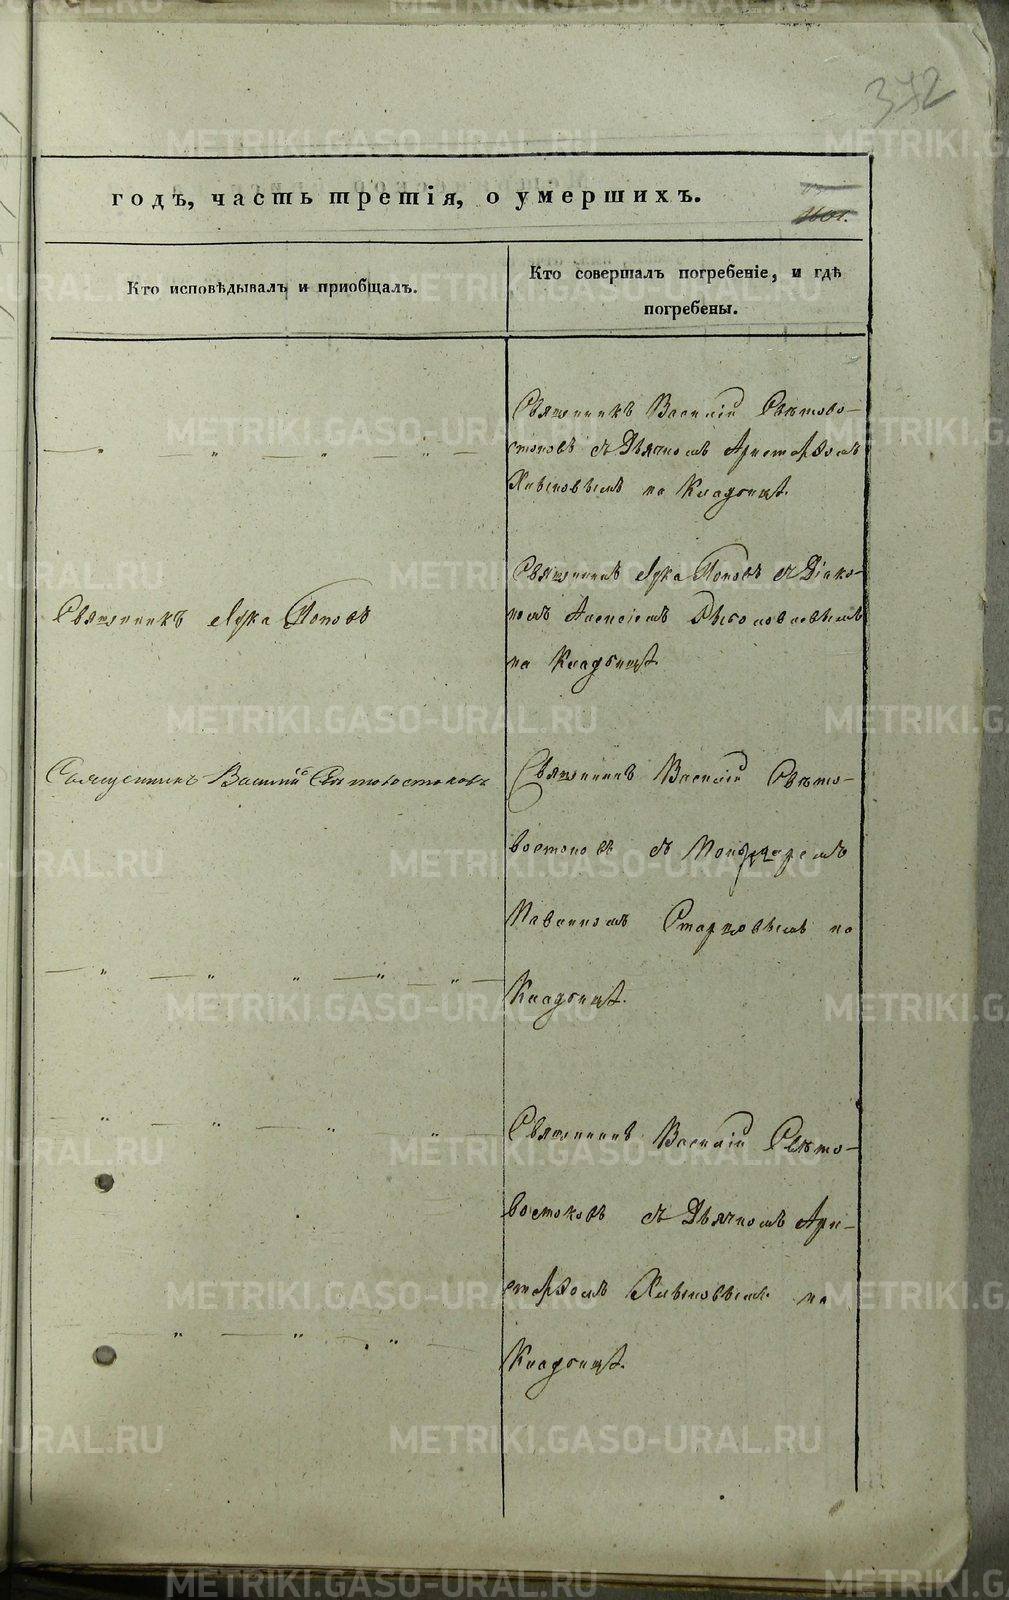 372
годъ, часть третія, о умершихъ.
1601.
Кто исповѣдывалъ и пріобщалъ.
Кто совершалъ погребеніе, и гдѣ
погребены.
Священникъ Василій Свѣтово-
стоковъ съ Дьячкомъ Аристархомъ
на Кладбищѣ.
Священникъ Лука Поповъ съ Діако-
номъ
на Кладбищѣ.
Священникъ Лука Поповъ
Священникъ Василій Свѣтовостоковъ
Священникъ Василій Свѣто-
востоковъ съ Пономаремъ
Старцовымъ на
Кладбищѣ.
Священникъ Василій Свѣто-
востоковъ съ Дьячкомъ Ари-
стархомъ на
Кладбищѣ.
METRIKI.GASO-URAL.RU